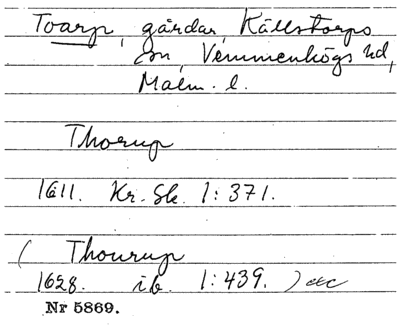 Toarp, gårdar, Källstorps
sn, Vemmenhögs hd,
Malm. l.
Thorup
1611. Kr. Sk. 1:371.
( Thourup
1628. ib. 1:439. ) etc
Nr 5869.